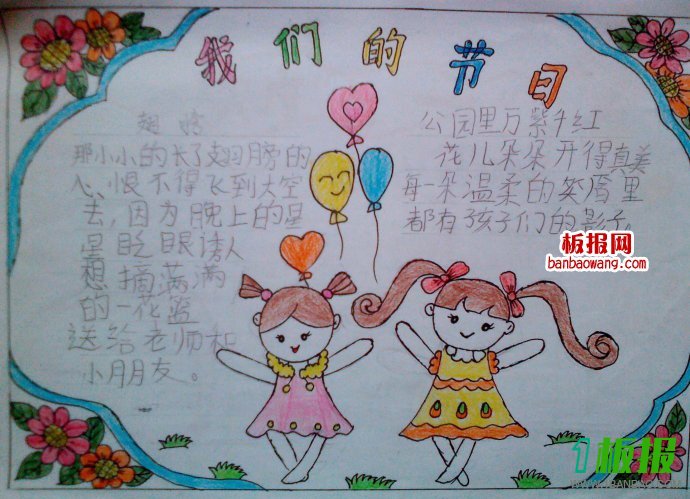 我们的节日
翅膀
那小小的长了翅膀的
心,恨不得飞到太空
去,因为晚上的星
星眨眼诱人
想摘满满
的一花篮
送给老师和
小朋友。
公园里万紫千红
花儿朵朵开得真美
每一朵温柔的笑眉里
都有孩子们的影子
板报网
banbaowang.com
1板报